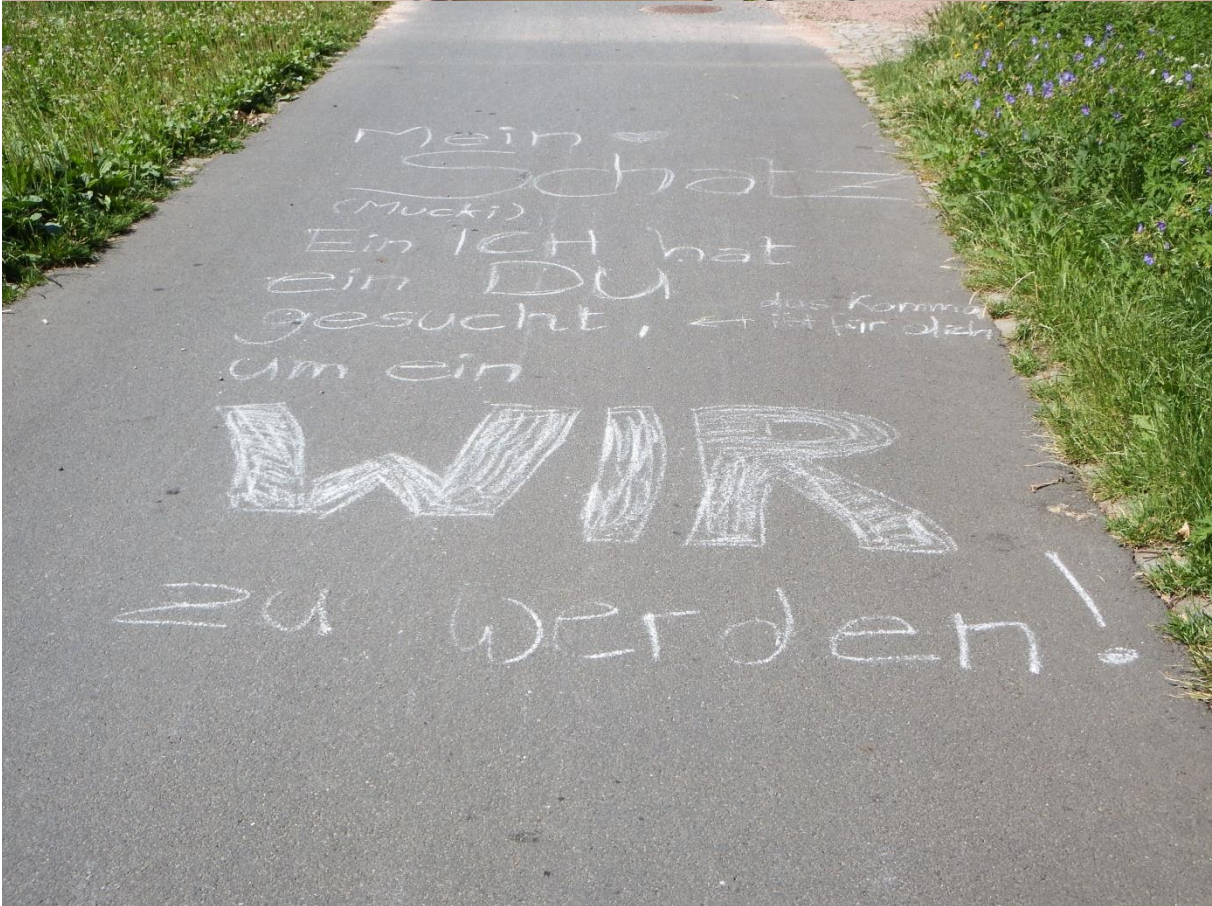 Mein ♥
Schatz
(Mucki)
Ein ICH hat
ein DU
gesucht, ← das Komma
ist für dich
um ein
WIR
zu werden!